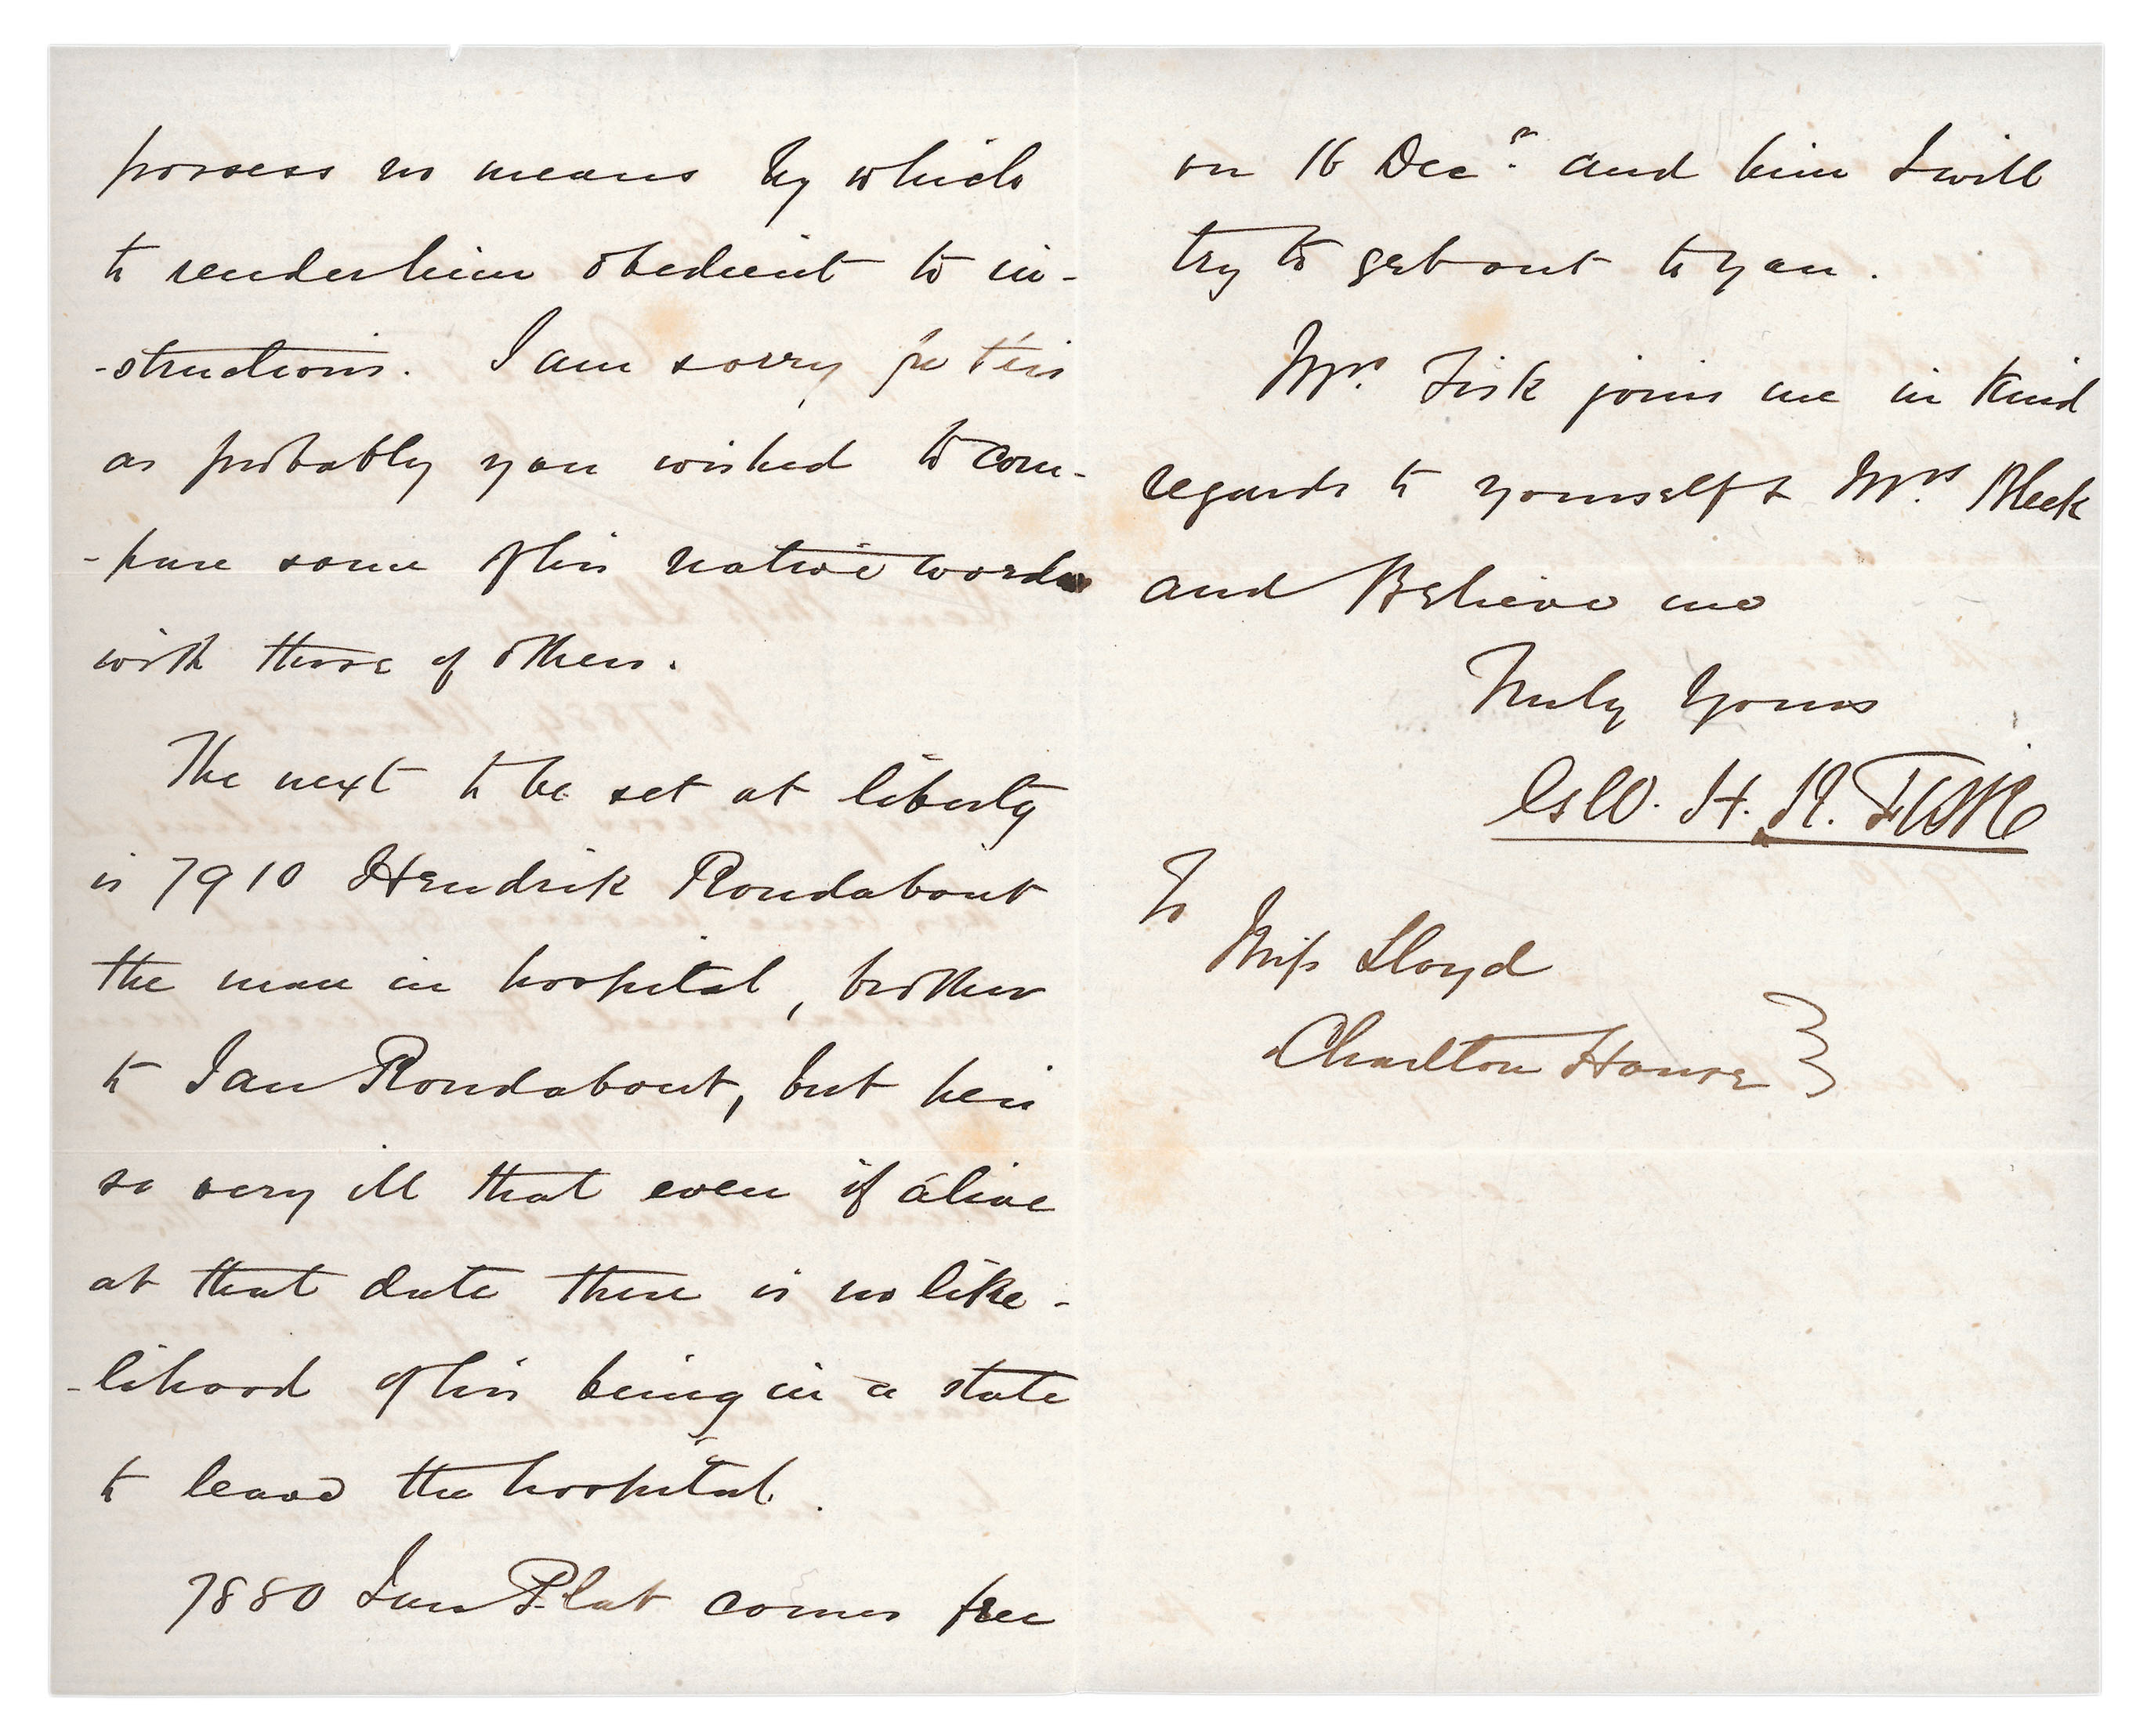 possess no means by which
to render him obedient to in-
-structions. I am sorry for this
as probably you wished to com-
-pare some of his native words
with those of others.
The next to be set at liberty
is 7910 Hendrik Rondabout
the man in hospital, brother
to Jan Rondabout, but he is
so very ill that even if alive
at that date there is no like-
-lihood of his being in a state
to leave the hospital.
7880 Jan Plat comes free
on 16 Decr. and him I will
try to get out to you.
Mrs. Fisk joins me in kind
regards to yourself & Mrs. Bleek
and Believe me
Truly Yours
H. R. Fisk
To
Miss Lloyd
Charlton House